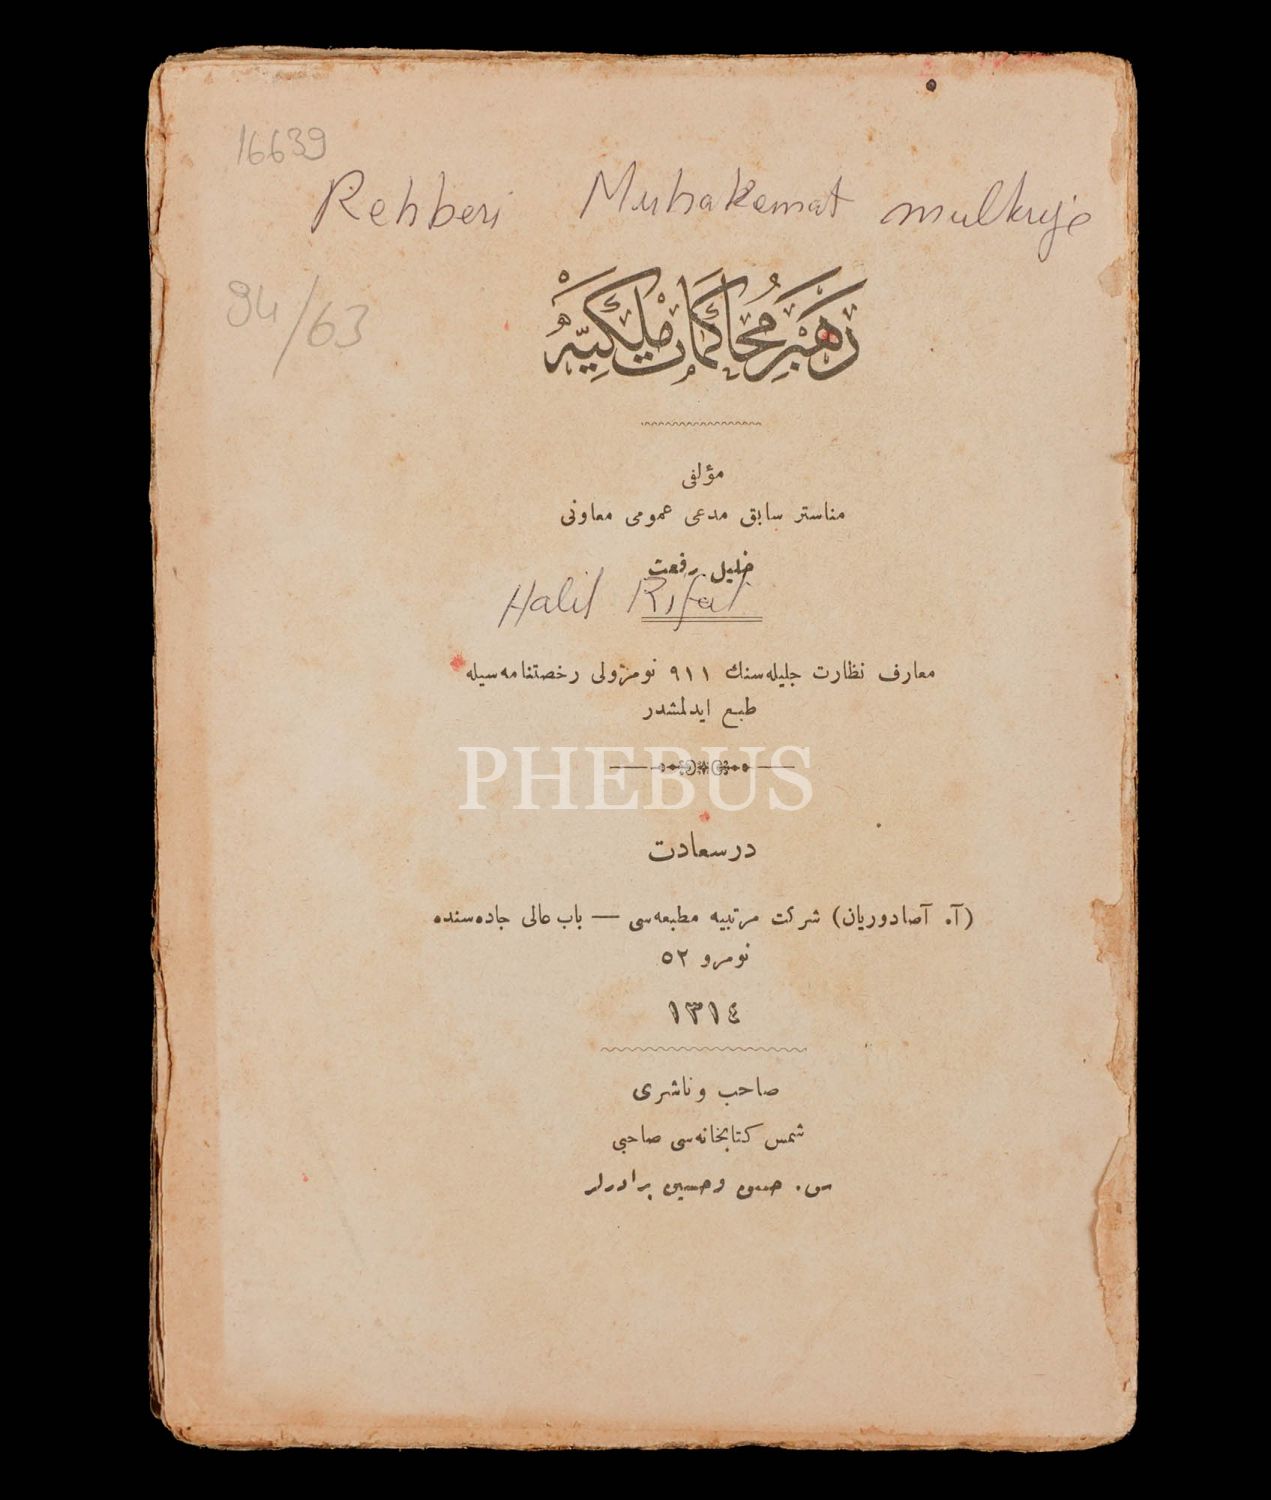 16639
Rehberi Muhakemat mulkiye
94/63
رَهْبَرِ مُحَاكَمَاتِ مُلْكِيَّهْ
مؤلفی
مناستر سابق مدعی عمومی معاونی
خلیل رفعت
Halil Rifat
معارف نظارت جلیله‌سنك ٩١١ نومرولی رخصتنامه‌سیله
طبع ایدلمشدر
PHEBUS
درسعادت
(آ. آصادوریان) شركت مرتبیه مطبعه‌سی — باب عالی جاده‌سنده
نومرو ٥٢
١٣١٤
صاحب و ناشری
شمس كتابخانه‌سی صاحبی
س. حسن و حسین برادرلر